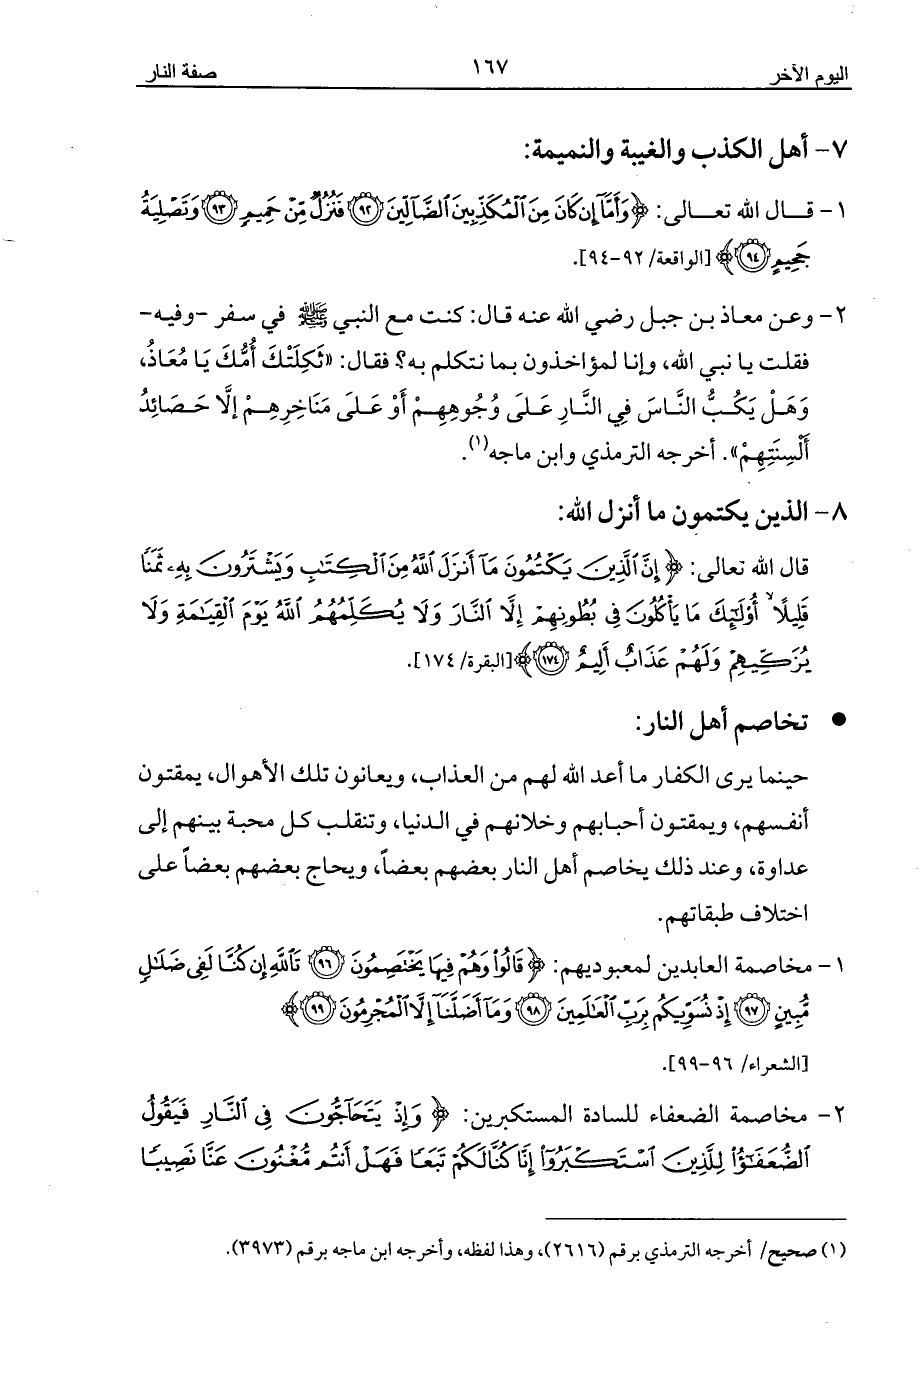 اليوم الآخر ١٦٧ صفة النار
٧- أهل الكذب والغيبة والنميمة:
١- قـــال الله تعـــالى: ﴿وَأَمَّآ إِن كَانَ مِنَ ٱلْمُكَذِّبِينَ ٱلضَّآلِّينَ ﴿٩٢﴾ فَنُزُلٌ مِّنْ حَمِيمٍ ﴿٩٣﴾ وَتَصْلِيَةُ
جَحِيمٍ ﴿٩٤﴾﴾ [الواقعة/ ٩٢-٩٤].
٢- وعن معاذ بن جبل رضي الله عنه قال: كنت مع النبي ﷺ في سفر -وفيه-
فقلت يا نبي الله، وإنا لمؤاخذون بما نتكلم به؟ فقال: «ثَكِلَتْكَ أُمُّكَ يَا مُعَاذُ،
وَهَلْ يَكُبُّ النَّاسَ فِي النَّارِ عَلَى وُجُوهِهِمْ أَوْ عَلَى مَنَاخِرِهِمْ إلَّا حَصَائِدُ
أَلْسِنَتِهِمْ». أخرجه الترمذي وابن ماجه(١).
٨- الذين يكتمون ما أنزل الله:
قال الله تعالى: ﴿إِنَّ ٱلَّذِينَ يَكْتُمُونَ مَآ أَنزَلَ ٱللَّهُ مِنَ ٱلْكِتَٰبِ وَيَشْتَرُونَ بِهِۦ ثَمَنًا
قَلِيلًا ۙ أُو۟لَٰٓئِكَ مَا يَأْكُلُونَ فِى بُطُونِهِمْ إِلَّا ٱلنَّارَ وَلَا يُكَلِّمُهُمُ ٱللَّهُ يَوْمَ ٱلْقِيَٰمَةِ وَلَا
يُزَكِّيهِمْ وَلَهُمْ عَذَابٌ أَلِيمٌ ﴿١٧٤﴾﴾ [البقرة/ ١٧٤].
● تخاصم أهل النار:
حينما يرى الكفار ما أعد الله لهم من العذاب، ويعانون تلك الأهوال، يمقتون
أنفسهم، ويمقتون أحبابهم وخلانهم في الدنيا، وتنقلب كل محبة بينهم إلى
عداوة، وعند ذلك يخاصم أهل النار بعضهم بعضاً، ويحاج بعضهم بعضاً على
اختلاف طبقاتهم.
١- مخاصمة العابدين لمعبوديهم: ﴿قَالُوا۟ وَهُمْ فِيهَا يَخْتَصِمُونَ ﴿٩٦﴾ تَٱللَّهِ إِن كُنَّا لَفِى ضَلَٰلٍ
مُّبِينٍ ﴿٩٧﴾ إِذْ نُسَوِّيكُم بِرَبِّ ٱلْعَٰلَمِينَ ﴿٩٨﴾ وَمَآ أَضَلَّنَآ إِلَّا ٱلْمُجْرِمُونَ ﴿٩٩﴾﴾
[الشعراء/ ٩٦-٩٩].
٢- مخاصمة الضعفاء للسادة المستكبرين: ﴿وَإِذْ يَتَحَآجُّونَ فِى ٱلنَّارِ فَيَقُولُ
ٱلضُّعَفَٰٓؤُا۟ لِلَّذِينَ ٱسْتَكْبَرُوٓا۟ إِنَّا كُنَّا لَكُمْ تَبَعًا فَهَلْ أَنتُم مُّغْنُونَ عَنَّا نَصِيبًا
(١) صحيح/ أخرجه الترمذي برقم (٢٦١٦)، وهذا لفظه، وأخرجه ابن ماجه برقم (٣٩٧٣).